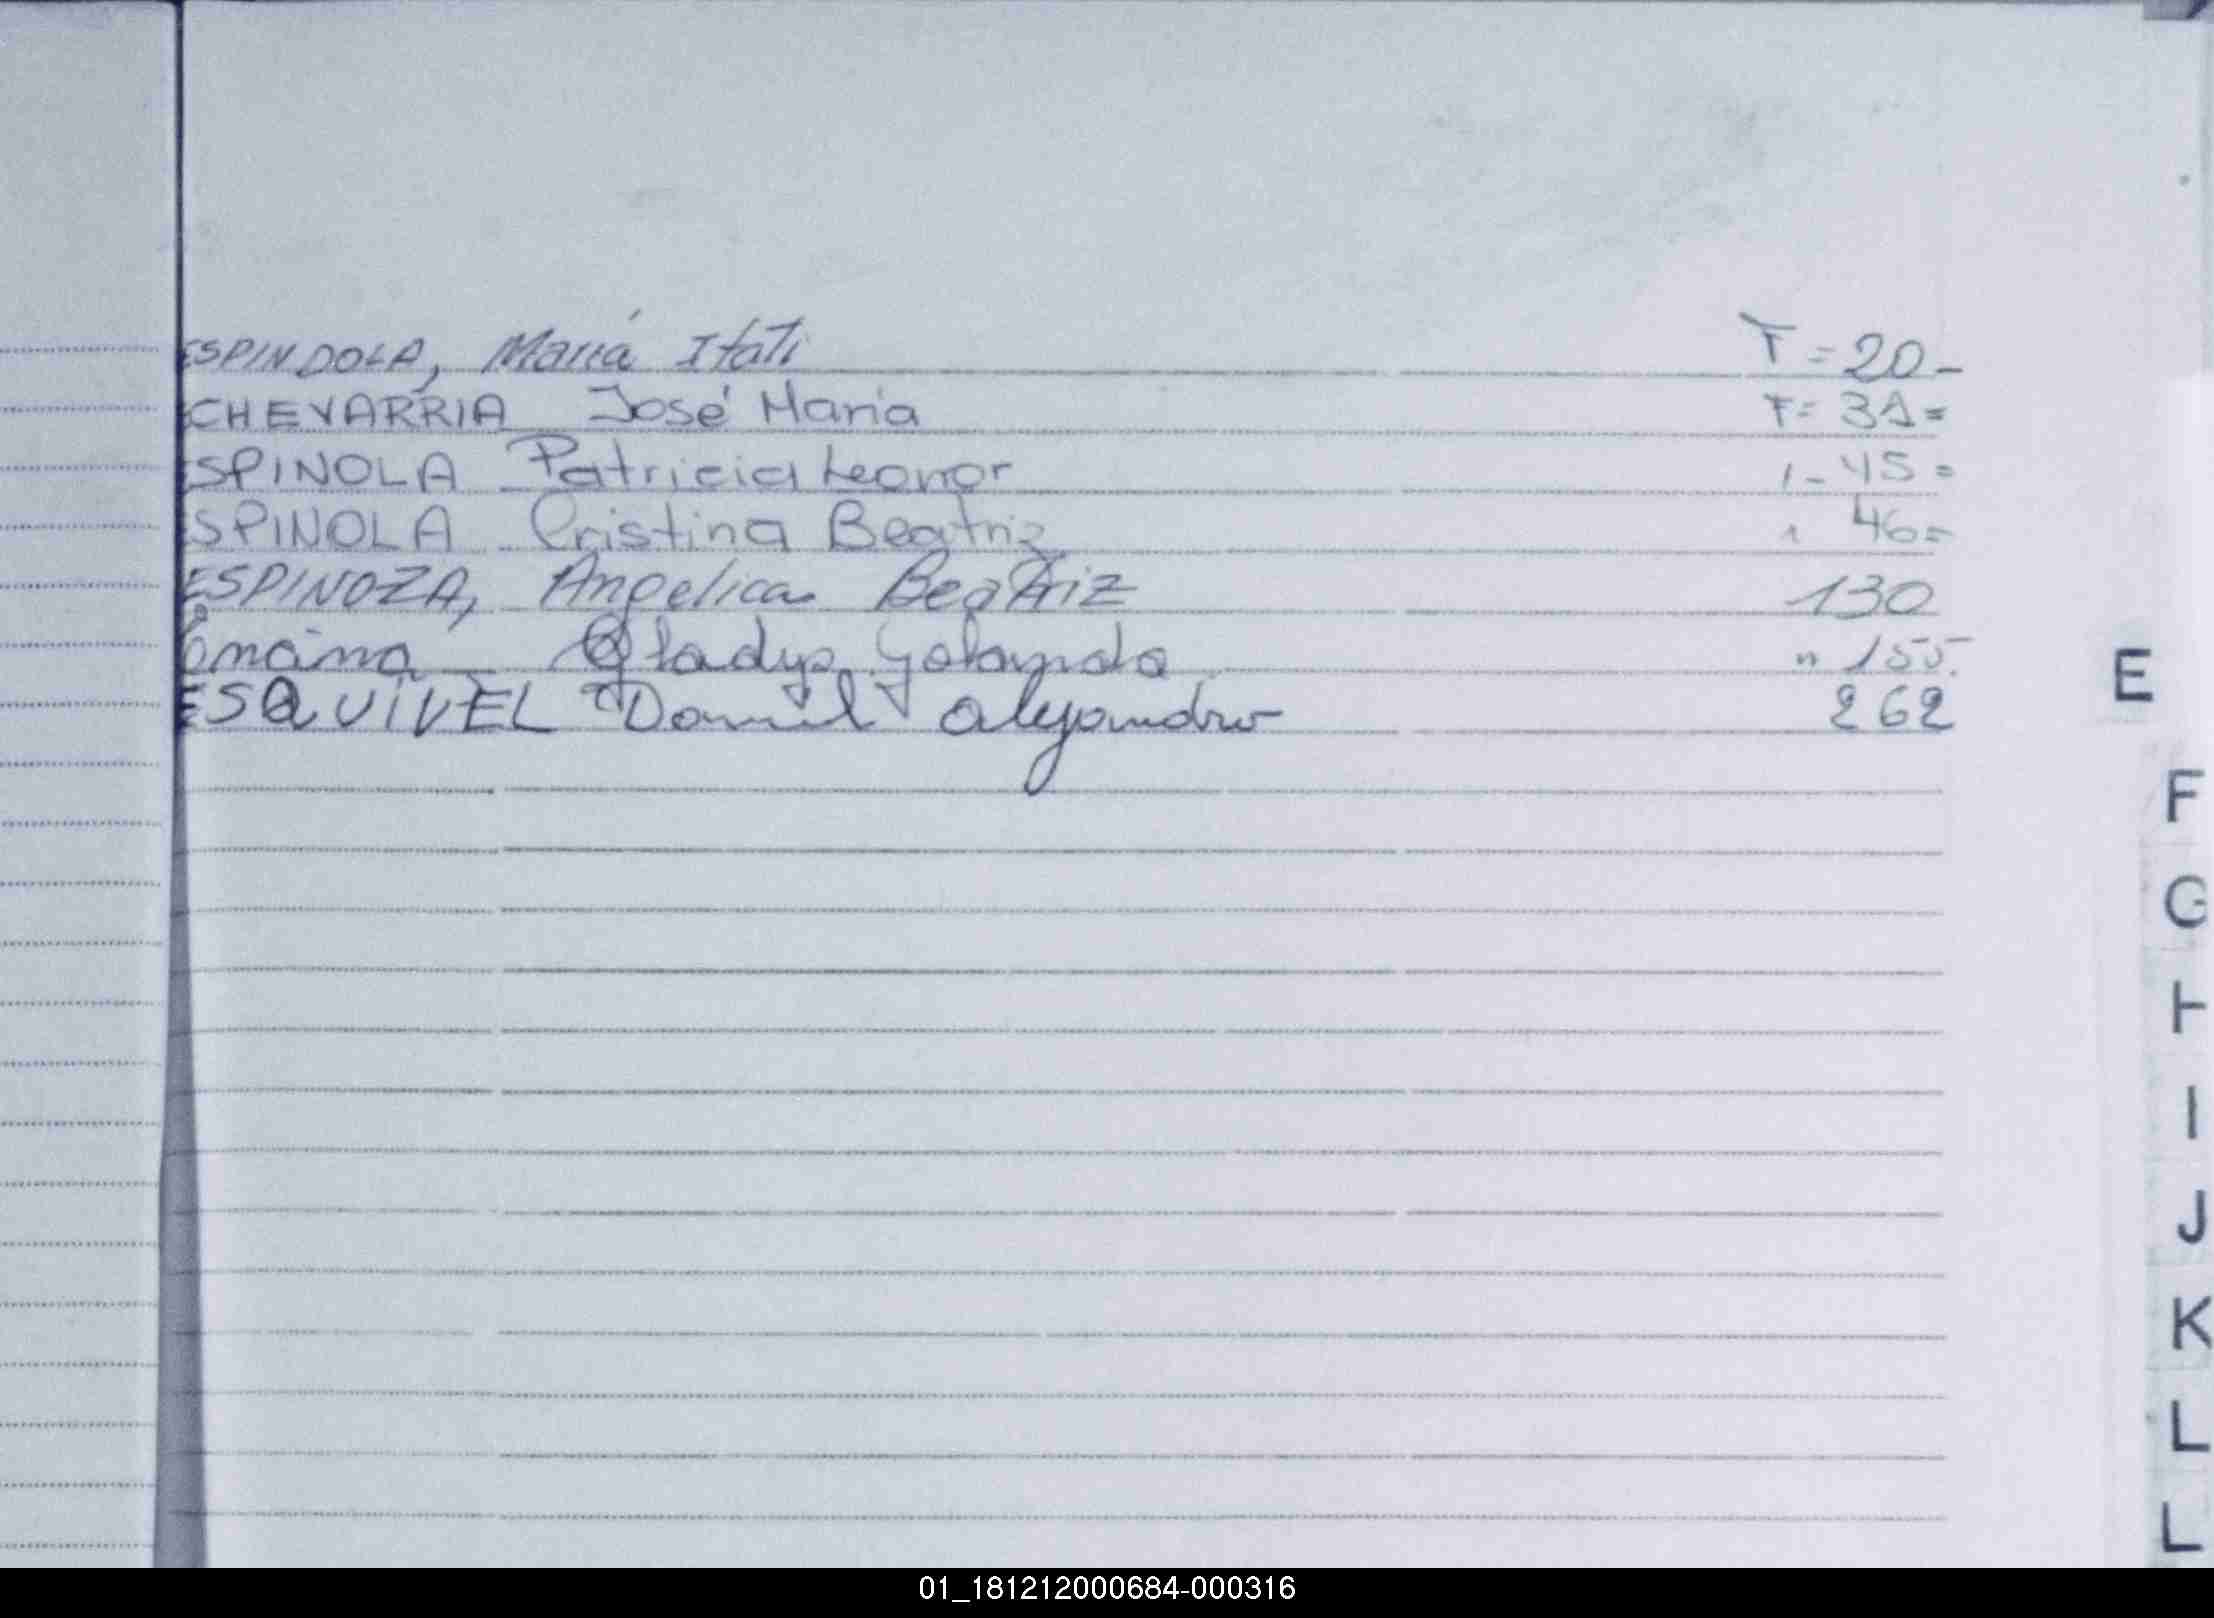 ESPINDOLA, María Itatí T = 20 -
ECHEVARRIA José María F = 31 =
ESPINOLA Patricia Leonor 1 - 45 =
ESPINOLA Cristina Beatriz " 46 =
ESPINOZA, Angelica Beatriz 130
Encina Gladys Yolanda " 155.
ESQUIVEL Daniel Alejandro 262
E
F
G
H
I
J
K
L
L
01_181212000684-000316